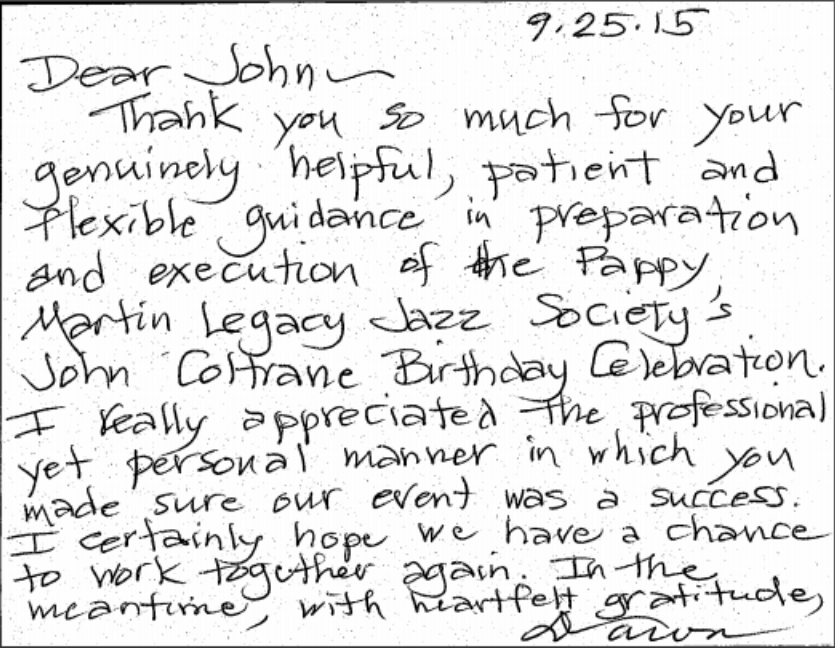 9.25.15
Dear John ~
Thank you so much for your
genuinely helpful, patient and
flexible guidance in preparation
and execution of the Pappy
Martin Legacy Jazz Society's
John Coltrane Birthday Celebration.
I really appreciated the professional
yet personal manner in which you
made sure our event was a success.
I certainly hope we have a chance
to work together again. In the
meantime, with heartfelt gratitude,
Dawn